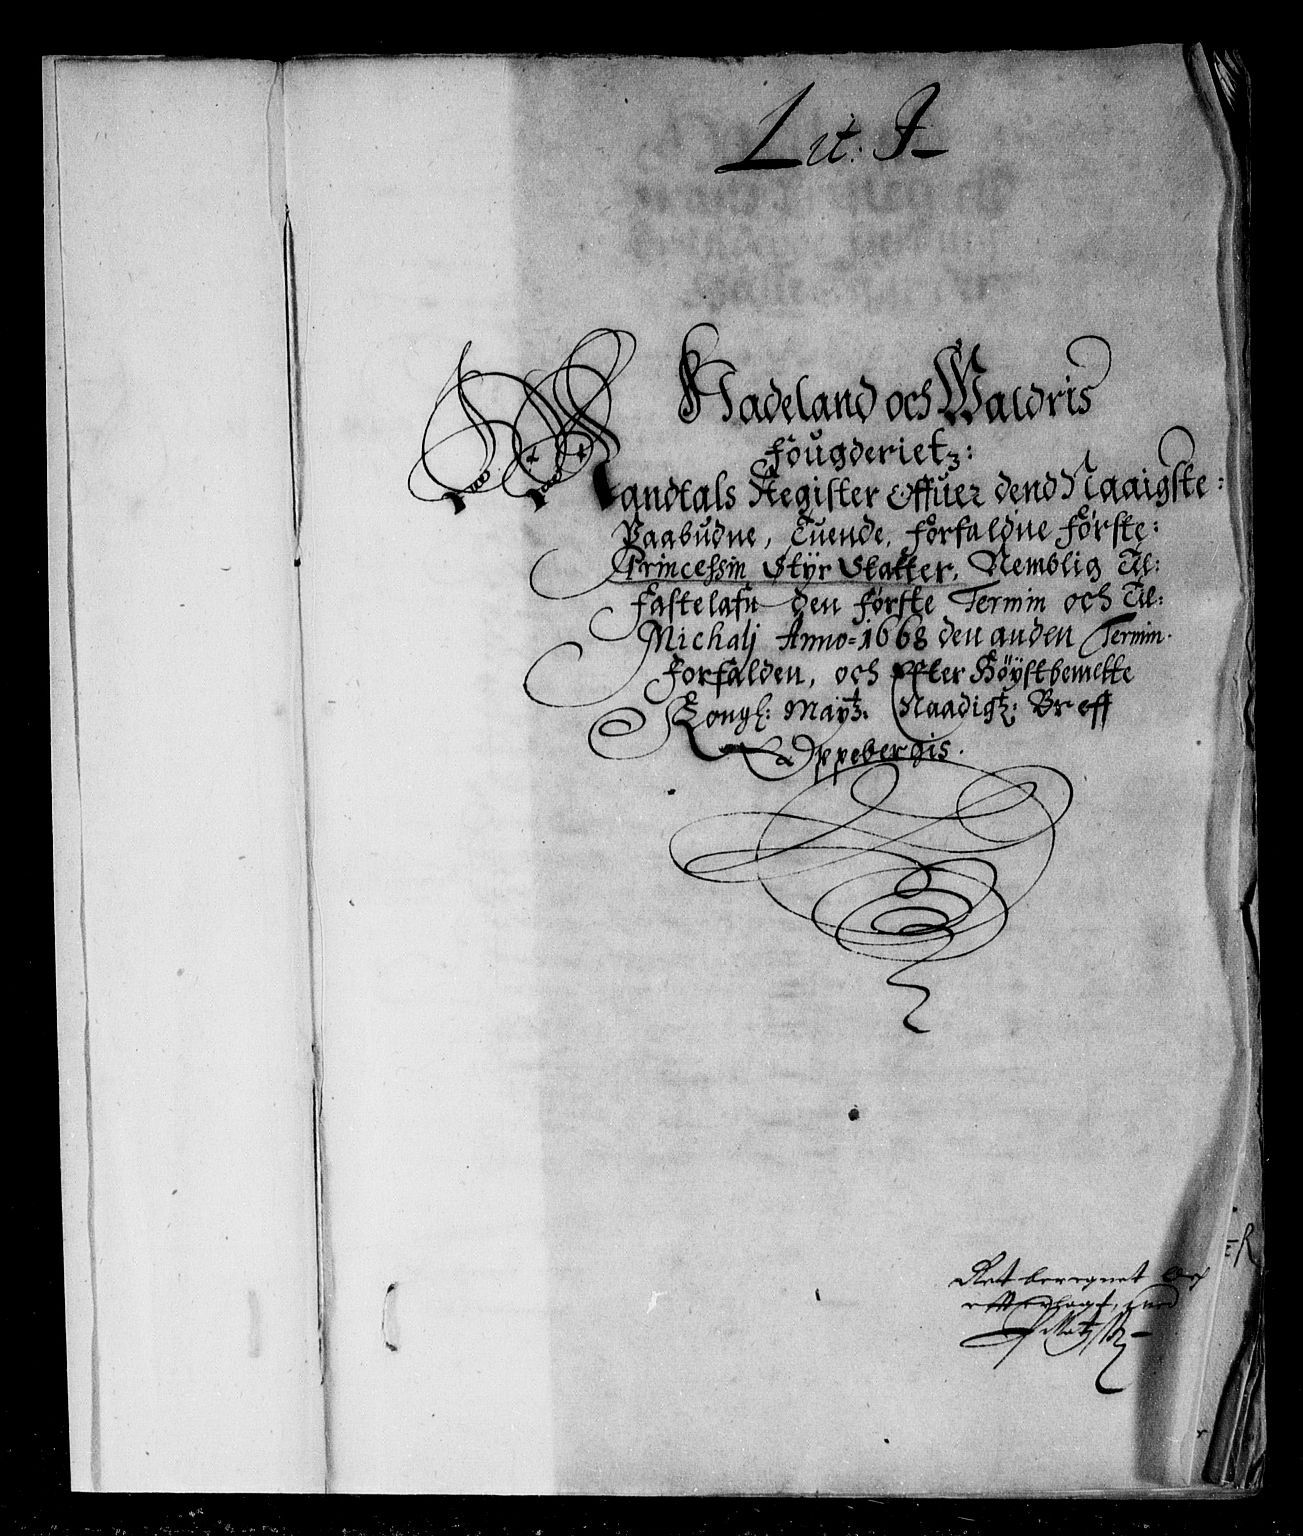 Lit: J
Hadeland och Waldris
fougderietz:
Mandtals Register Offuer dend Naaigste:
Paabudne, Tuende, forfaldne første:
Princessin Styr Skatter, Nemblig Til:
fastelafn den første Termin och Til:
Michalj Anno=1668 den anden Termin.
forfalden, och effter Høystbemelte
Kongl: Maytz. Naadigst: Breff
Oppebergis.
Ret beregnet och
efterlagt,